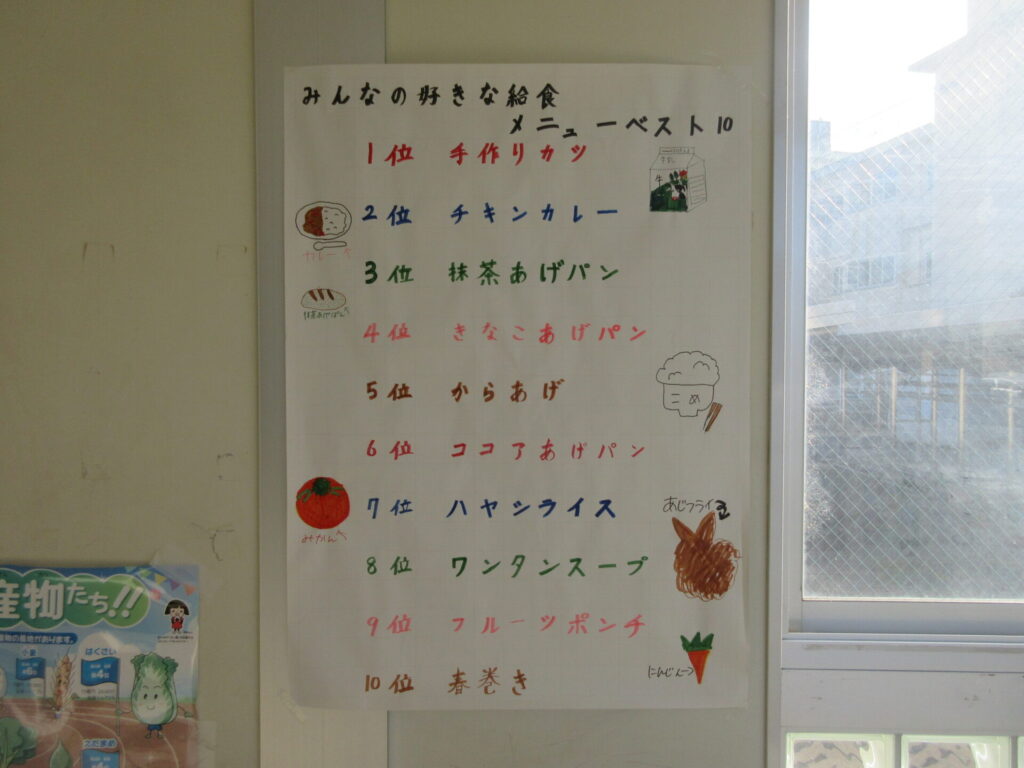 みんなの好きな給食
メニューベスト10
1位 手作りカツ
2位 チキンカレー
カレー
3位 抹茶あげパン
抹茶あげぱん
4位 きなこあげパン
5位 からあげ
こめ
6位 ココアあげパン
7位 ハヤシライス
みかん
あじフライ
8位 ワンタンスープ
9位 フルーツポンチ
にんじん
10位 春巻き
産物たち!!
産物の産地があります。
小麦
はくさい
えだまめ